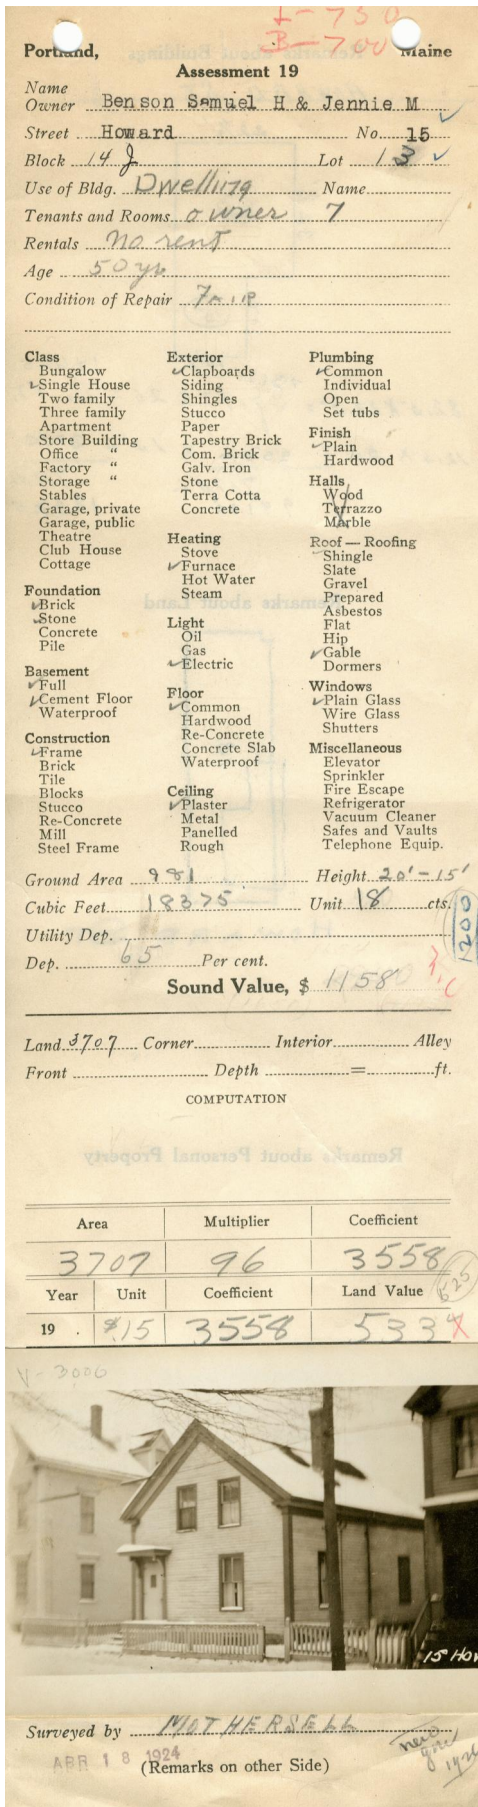 L-750
B-700
Portland, Maine
Assessment 19
Name
Owner Benson Samuel H & Jennie M
Street Howard No. 15
Block 14 J Lot 13
Use of Bldg. Dwelling Name
Tenants and Rooms owner 7
Rentals no rent
Age 50 yrs
Condition of Repair Fair
Class
Bungalow
Single House
Two family
Three family
Apartment
Store Building
Office "
Factory "
Storage "
Stables
Garage, private
Garage, public
Theatre
Club House
Cottage
Foundation
Brick
Stone
Concrete
Pile
Basement
Full
Cement Floor
Waterproof
Construction
Frame
Brick
Tile
Blocks
Stucco
Re-Concrete
Mill
Steel Frame
Exterior
Clapboards
Siding
Shingles
Stucco
Paper
Tapestry Brick
Com. Brick
Galv. Iron
Stone
Terra Cotta
Concrete
Heating
Stove
Furnace
Hot Water
Steam
Light
Oil
Gas
Electric
Floor
Common
Hardwood
Re-Concrete
Concrete Slab
Waterproof
Ceiling
Plaster
Metal
Panelled
Rough
Plumbing
Common
Individual
Open
Set tubs
Finish
Plain
Hardwood
Halls
Wood
Terrazzo
Marble
Roof — Roofing
Shingle
Slate
Gravel
Prepared
Asbestos
Flat
Hip
Gable
Dormers
Windows
Plain Glass
Wire Glass
Shutters
Miscellaneous
Elevator
Sprinkler
Fire Escape
Refrigerator
Vacuum Cleaner
Safes and Vaults
Telephone Equip.
Ground Area 981 Height 20'-15'
Cubic Feet 18375 Unit 18 cts.
1200
Utility Dep.
Dep. 65 Per cent.
Sound Value, $ 1158
Land 3707 Corner Interior Alley
Front Depth = ft.
COMPUTATION
Remarks about Personal Property
Area Multiplier Coefficient
3707 96 3558
525
Year Unit Coefficient Land Value
19 . $.15 3558 533
V-3006
15 How
Surveyed by MOTHERSELL
APR 18 1924
(Remarks on other Side)
new
1926